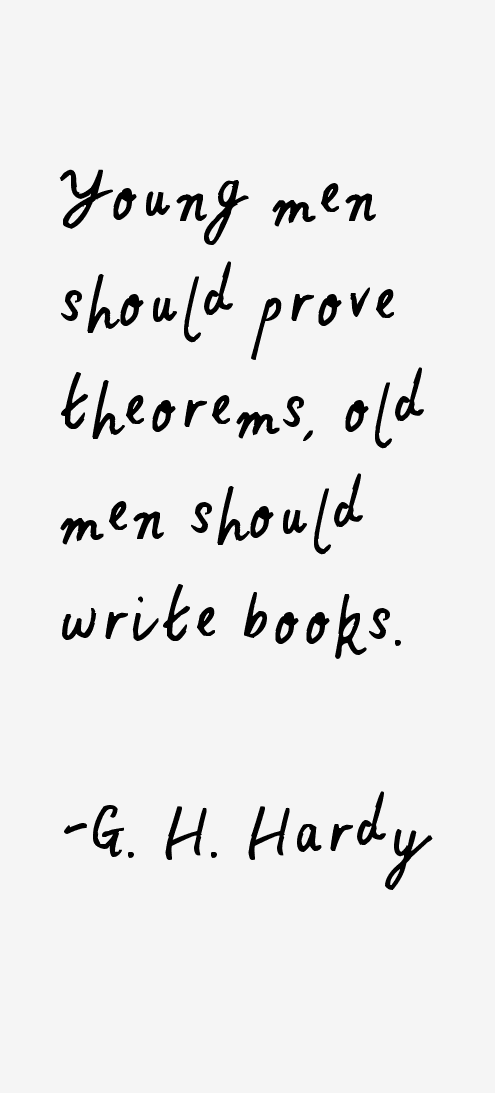 Young men
should prove
theorems, old
men should
write books.
-G. H. Hardy